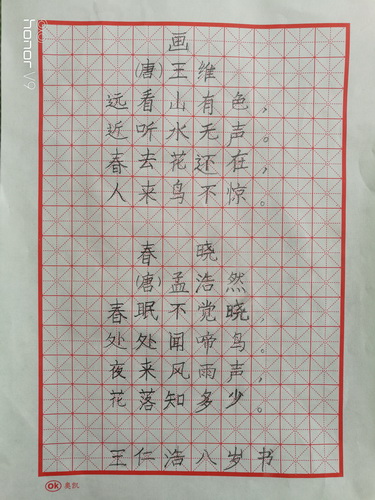 画
(唐)王维
远看山有色，
近听水无声。
春去花还在，
人来鸟不惊。
春晓
(唐)孟浩然
春眠不觉晓，
处处闻啼鸟。
夜来风雨声，
花落知多少。
王仁浩八岁书
ok 奥凯
honor V9